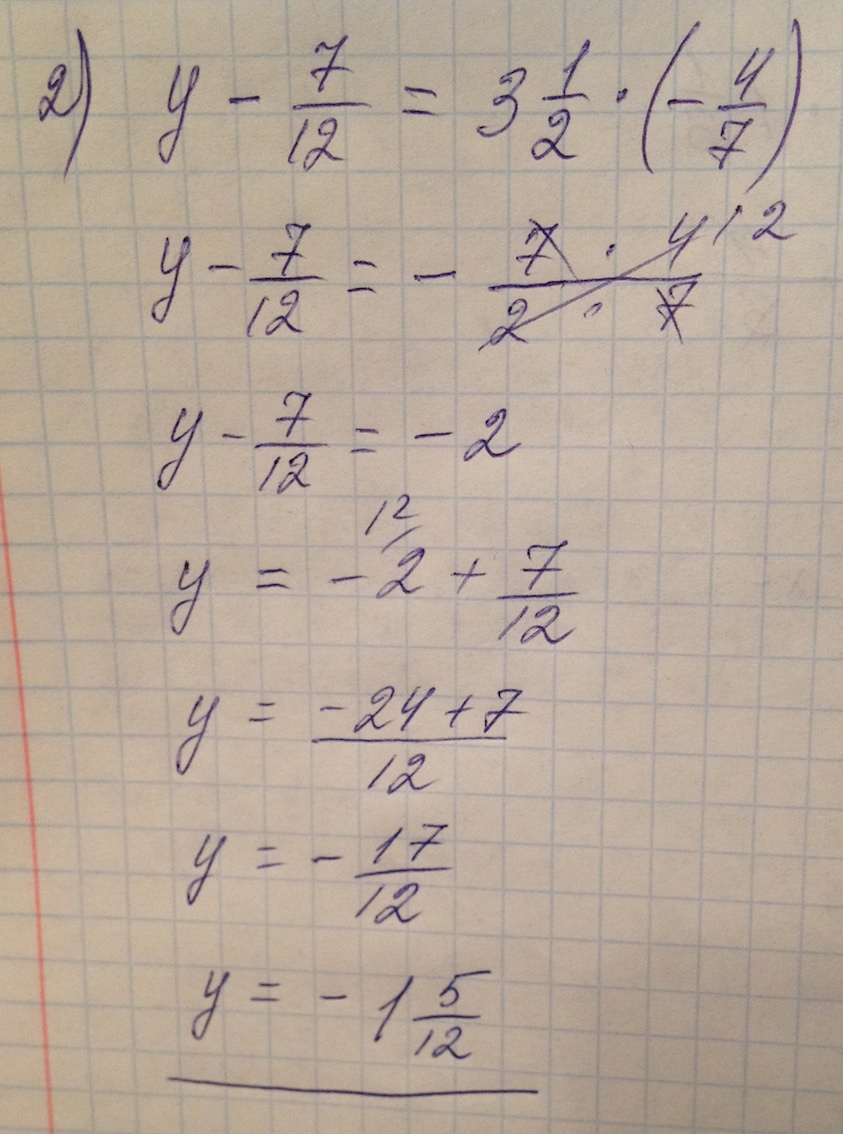 2) y - 7/12 = 3 1/2 · (- 4/7)
y - 7/12 = - 7 · 4 / 2 · 7 12
y - 7/12 = - 2
12/
y = - 2 + 7/12
y = -24+7 / 12
y = - 17/12
y = - 1 5/12